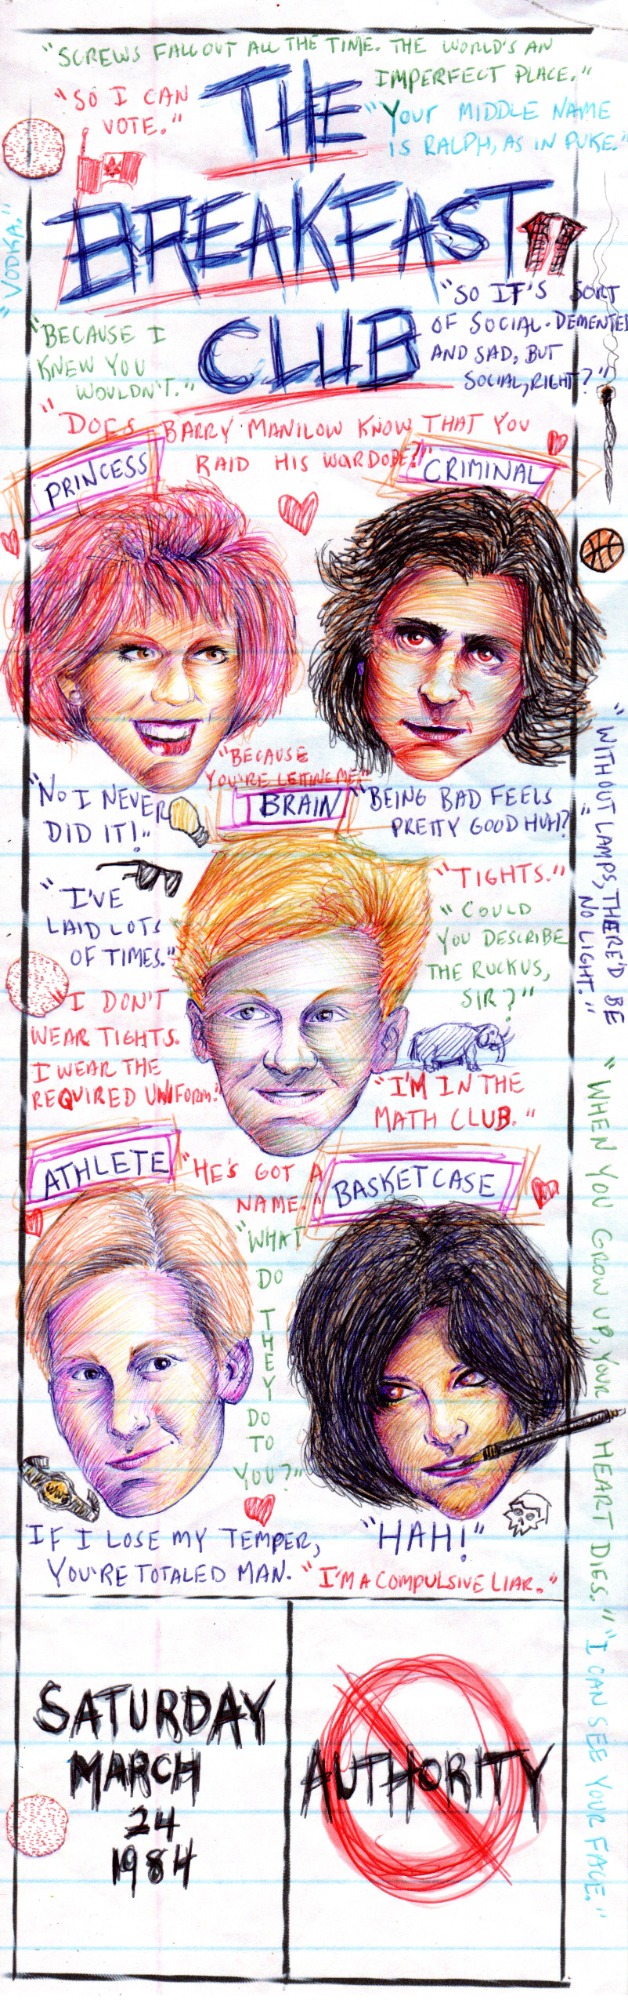 "SCREWS FALL OUT ALL THE TIME. THE WORLD'S AN
IMPERFECT PLACE."
"SO I CAN
VOTE."
THE
"YOUR MIDDLE NAME
IS RALPH, AS IN PUKE."
"VODKA."
BREAKFAST
CLUB
"SO IT'S SORT
OF SOCIAL. DEMENTED
AND SAD, BUT
SOCIAL, RIGHT?"
"BECAUSE I
KNEW YOU
WOULDN'T."
"DOES BARRY MANILOW KNOW THAT YOU
RAID HIS WARDOBE?"
PRINCESS
CRIMINAL
"BECAUSE
YOU'RE LETTING ME"
"NO I NEVER
DID IT!"
BRAIN
"BEING BAD FEELS
PRETTY GOOD HUH?"
"WITHOUT LAMPS, THERE'D BE
NO LIGHT."
"I'VE
LAID LOTS
OF TIMES."
"TIGHTS."
"COULD
YOU DESCRIBE
THE RUCKUS,
SIR?"
"I DON'T
WEAR TIGHTS.
I WEAR THE
REQUIRED UNIFORM."
"I'M IN THE
MATH CLUB."
ATHLETE
"HE'S GOT A
NAME."
BASKETCASE
"WHAT
DO
THEY
DO
TO
YOU?"
"WHEN YOU GROW UP, YOUR HEART DIES."
IF I LOSE MY TEMPER,
YOU'RE TOTALED MAN.
"HAH!"
"I'M A COMPULSIVE LIAR."
"I CAN SEE YOUR FACE."
SATURDAY
MARCH
24
1984
AUTHORITY